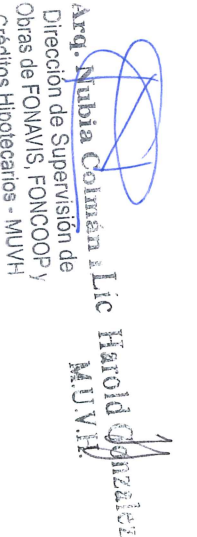 Arq. Nubia Colmán
Dirección de Supervisión de
Obras de FONAVIS, FONCOOP y
Créditos Hipotecarios - MUVH
Lic Harold Gonzalez
M.U.V.H.